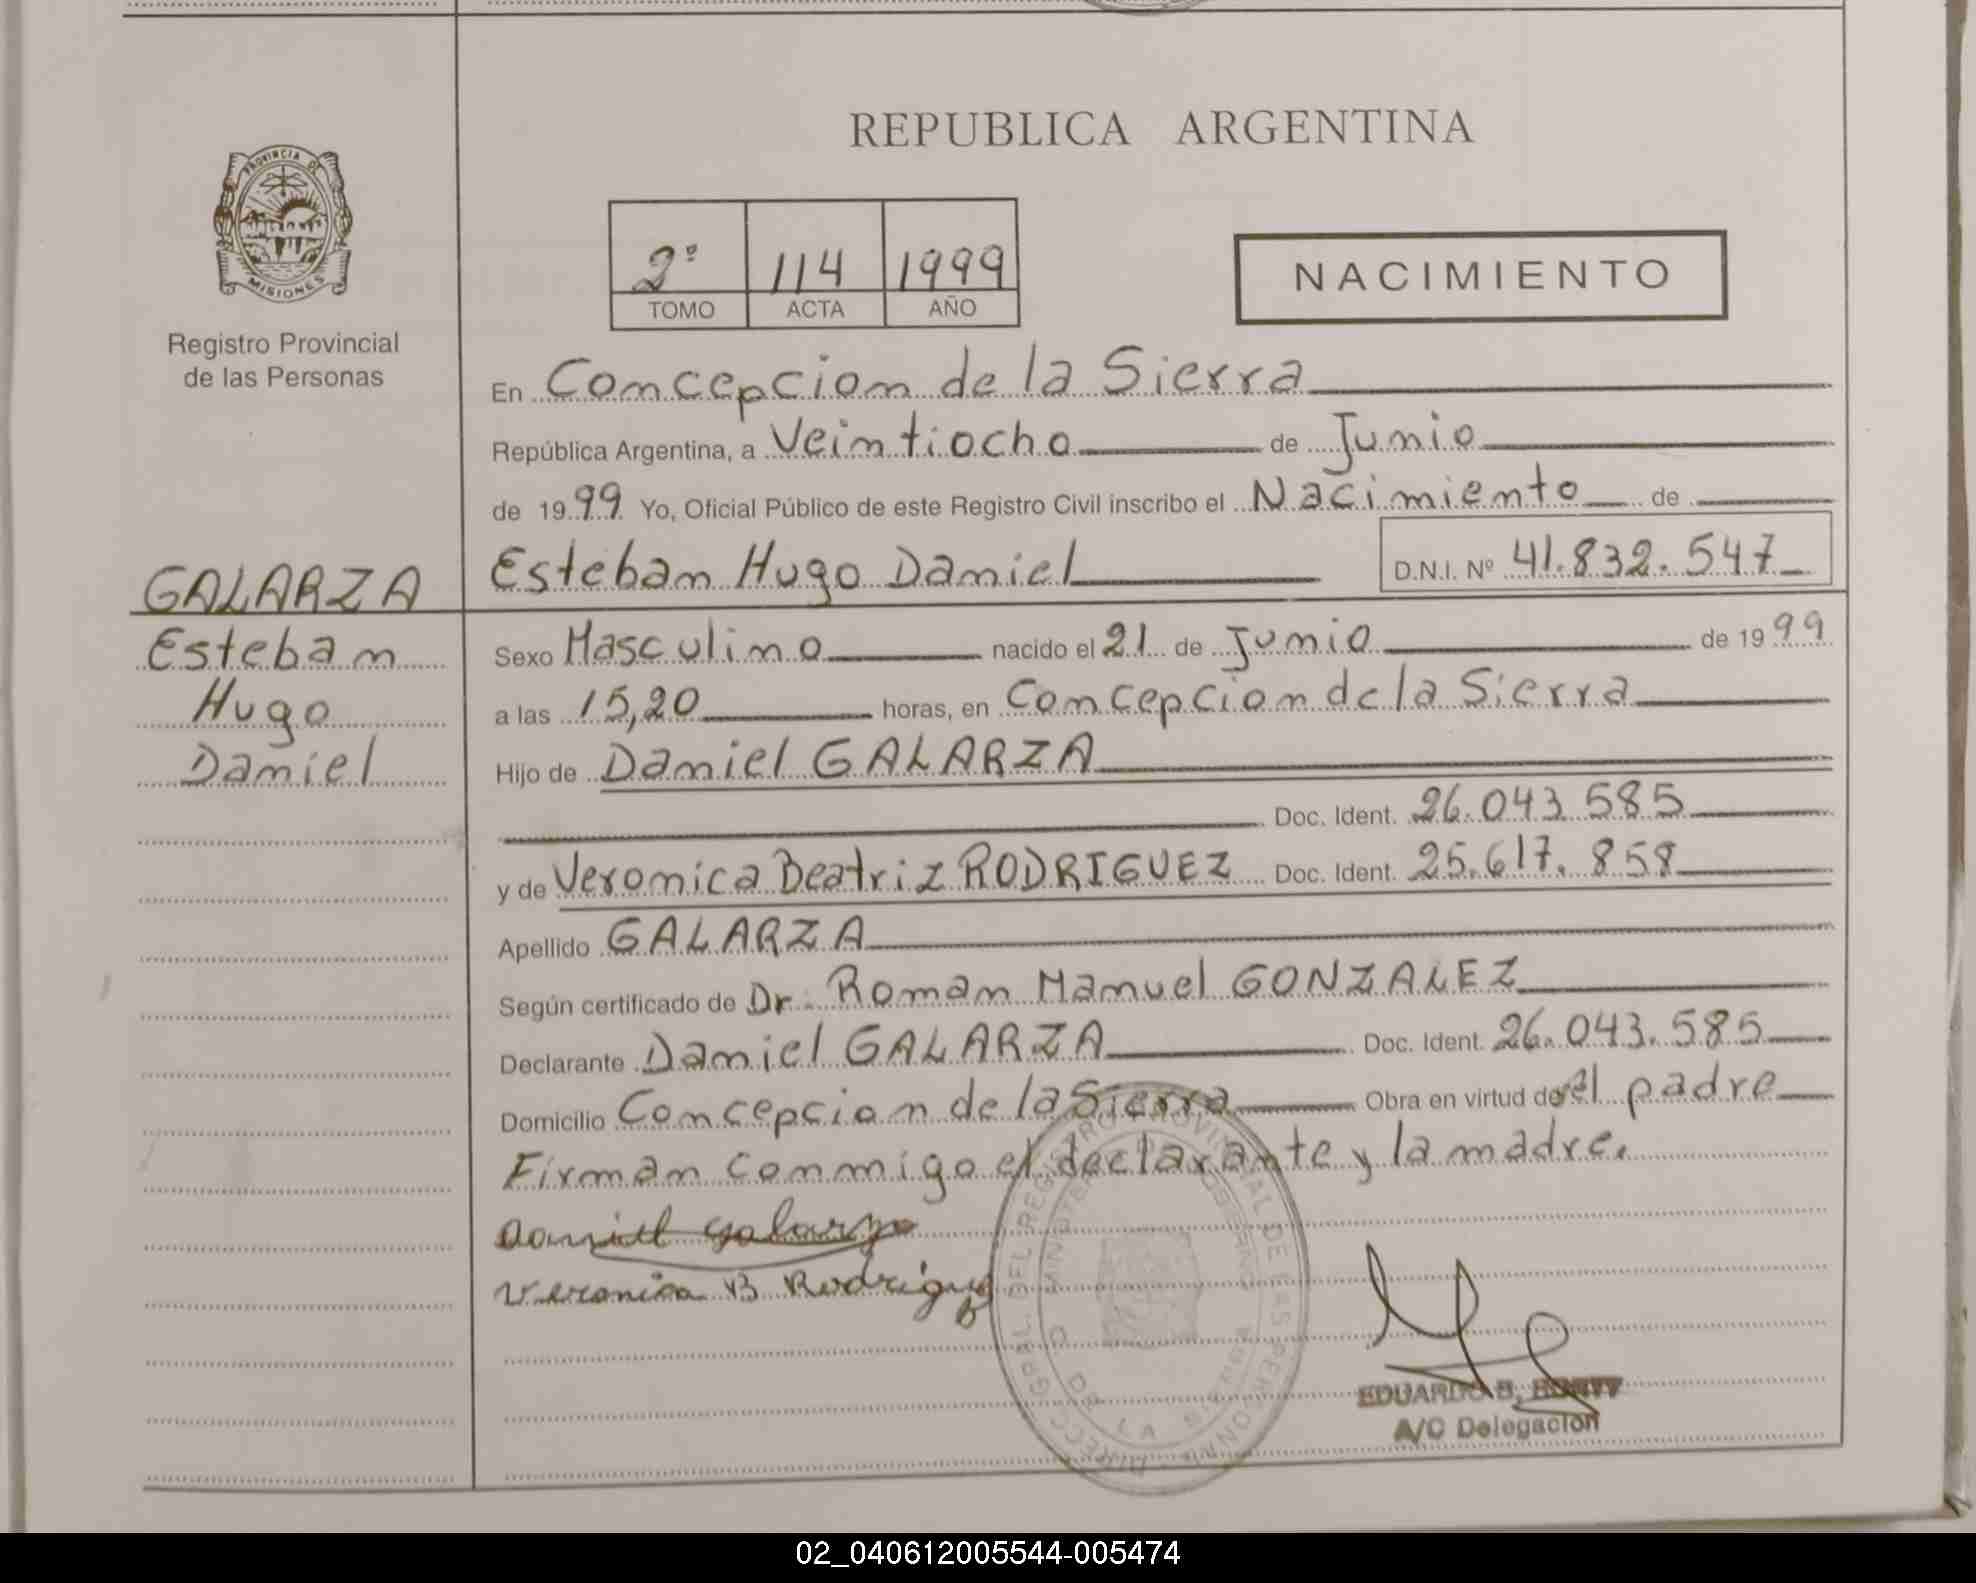 REPUBLICA ARGENTINA
PROVINCIA DE
MISIONES
Registro Provincial
de las Personas
2º 114 1999
TOMO ACTA AÑO
NACIMIENTO
En Concepcion de la Sierra
República Argentina, a Veintiocho de Junio
de 1999 Yo, Oficial Público de este Registro Civil inscribo el Nacimiento de
Esteban Hugo Daniel D.N.I. Nº 41.832.547
GALARZA
Esteban
Hugo
Daniel
Sexo Masculino nacido el 21 de Junio de 1999
a las 15,20 horas, en Concepcion de la Sierra
Hijo de Daniel GALARZA
Doc. Ident. 26.043.585
y de Veronica Beatriz RODRIGUEZ Doc. Ident. 25.617.858
Apellido GALARZA
Según certificado de Dr. Roman Manuel GONZALEZ
Declarante Daniel GALARZA Doc. Ident. 26.043.585
Domicilio Concepcion de la Sierra Obra en virtud de el padre
Firman conmigo el declarante y la madre.
Daniel Galarza
Veronica B Rodriguez
EDUARDO B.
A/C Delegacion
02_040612005544-005474